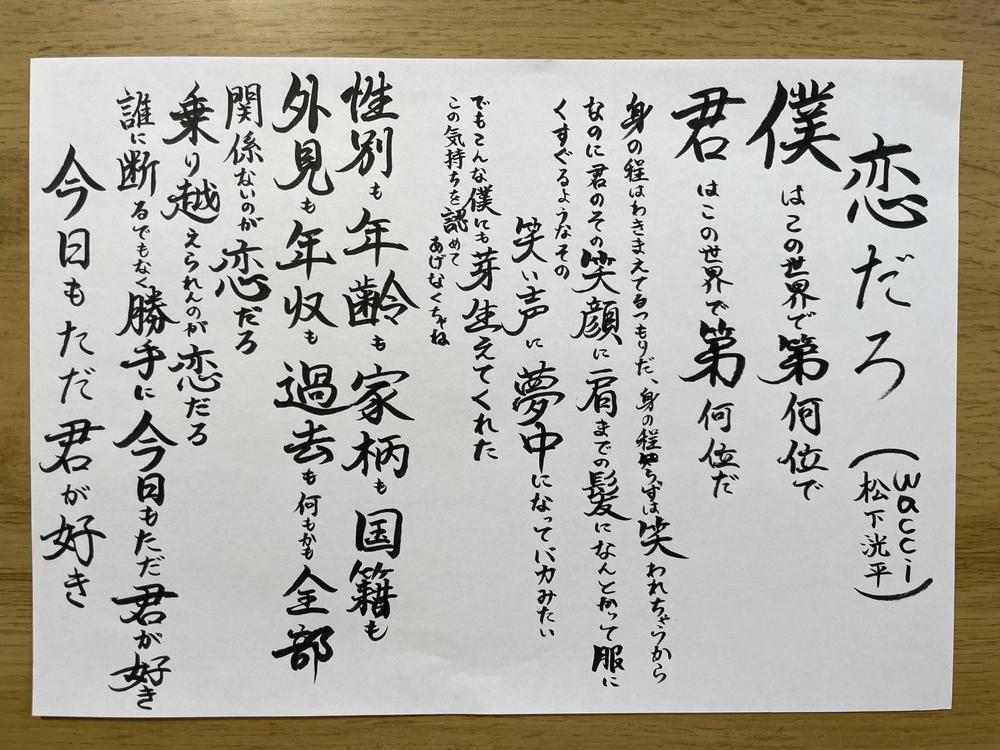 恋だろ
(wacci
松下洸平)
僕はこの世界で第何位で
君はこの世界で第何位だ
身の程はわきまえてるつもりだ、身の程知らずは笑われちゃうから
なのに君のその笑顔に肩までの髪になんとかって服に
くすぐるようなその
笑い声に夢中になってバカみたい
でもこんな僕にも芽生えてくれた
この気持ちを認めて
あげなくちゃね
性別も年齢も家柄も国籍も
外見も年収も過去も何もかも全部
関係ないのが恋だろ
乗り越えられんのが恋だろ
誰に断るでもなく勝手に今日もただ君が好き
今日もただ君が好き